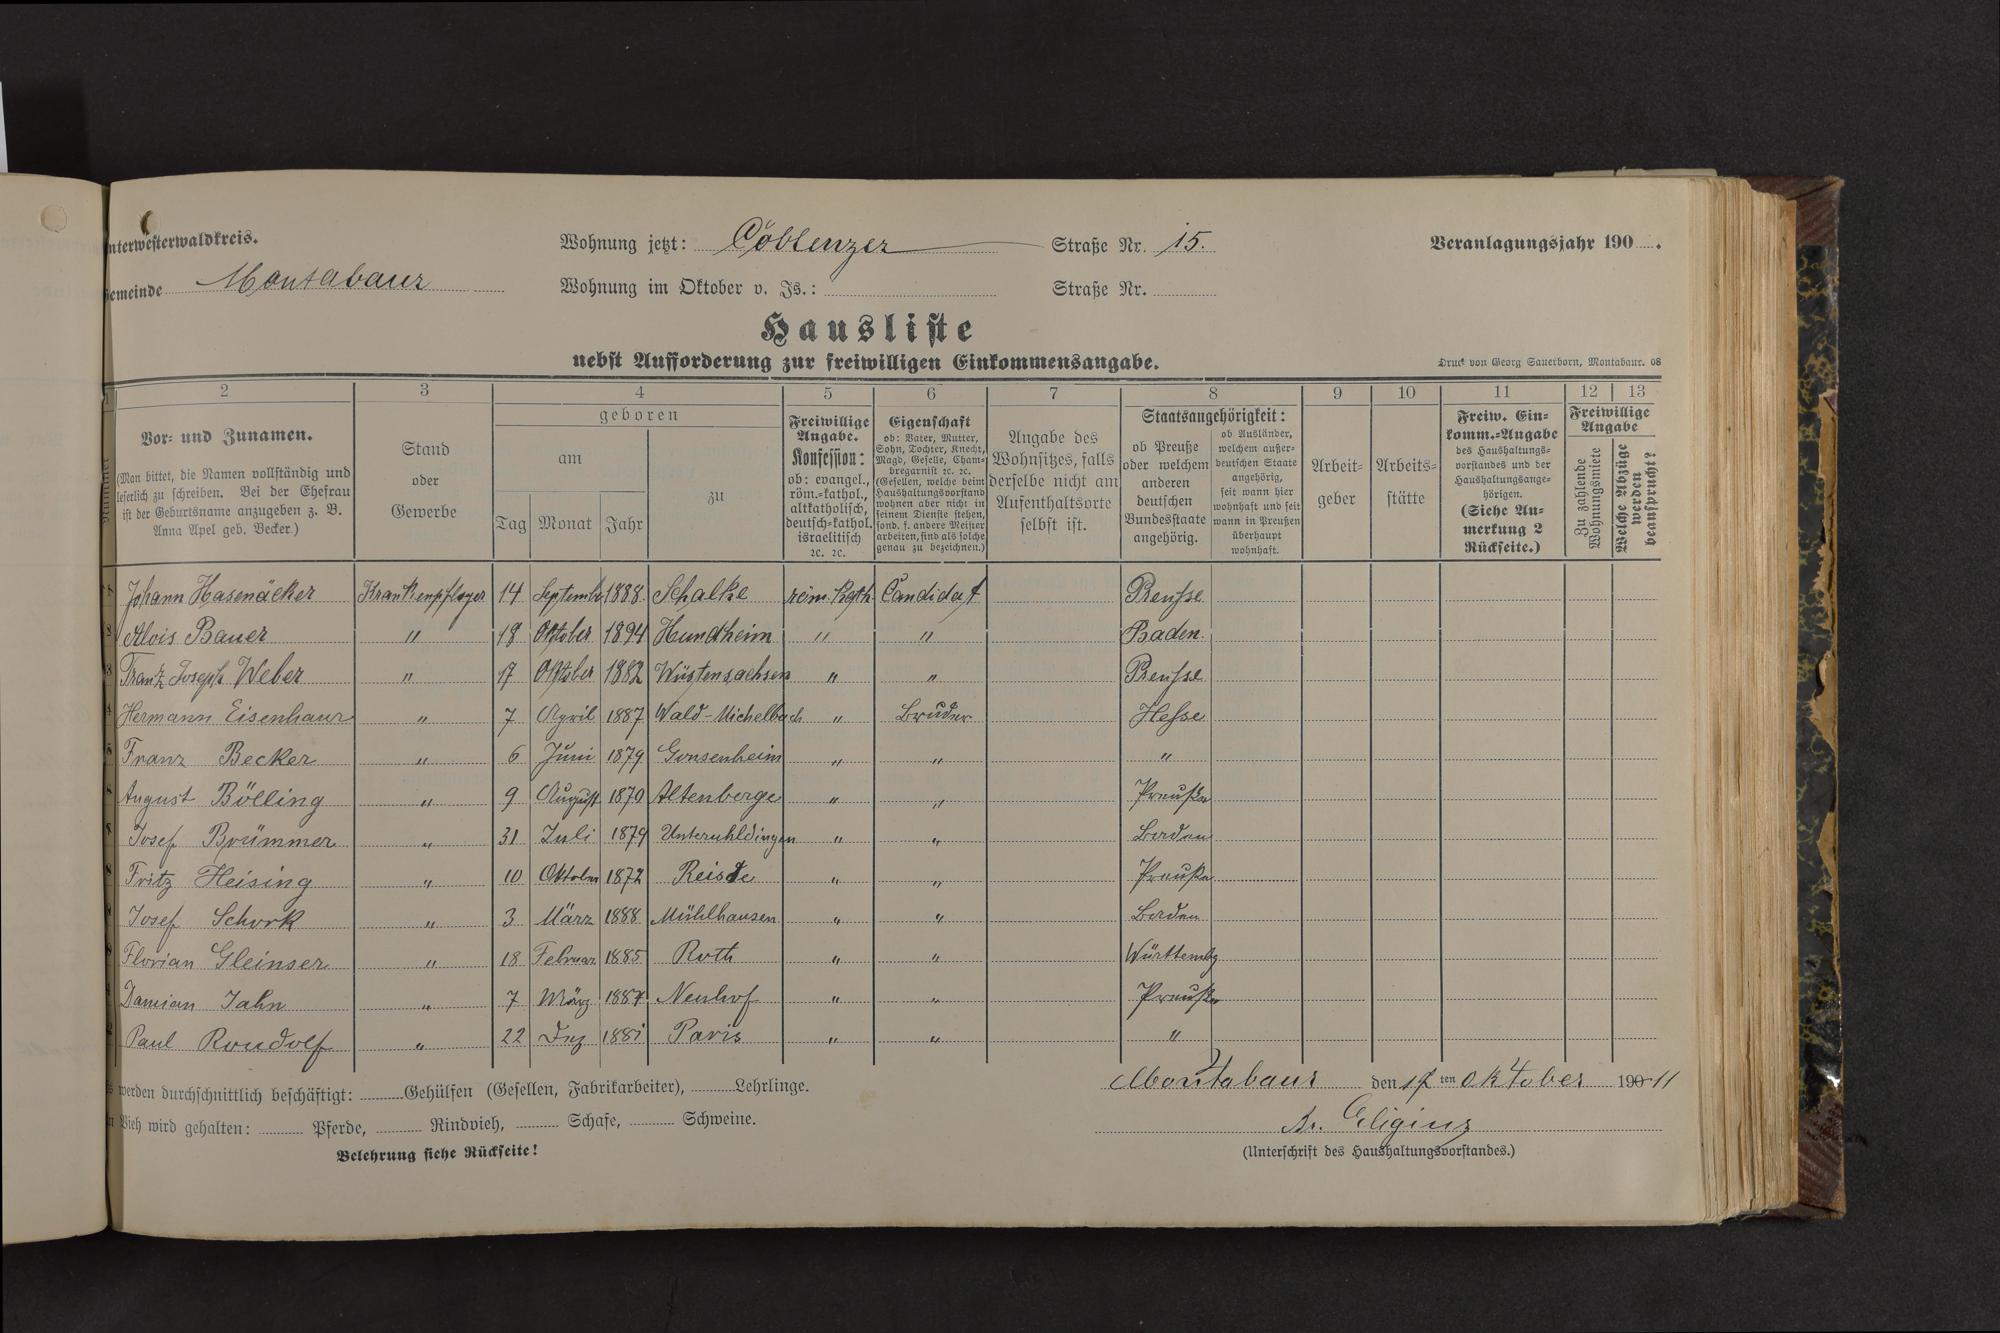 nterwesterwaldkreis.
Wohnung jetzt: Coblenzer Straße Nr. 15.
Veranlagungsjahr 190 .
emeinde Montabaur
Wohnung im Oktober v. Js.: Straße Nr.
Hausliste
nebst Aufforderung zur freiwilligen Einkommensangabe.
Druck von Georg Sauerborn, Montabaur. 08
1 2 3 4 5 6 7 8 9 10 11 12 13
Nummer
Vor- und Zunamen.
(Man bittet, die Namen vollständig und
leserlich zu schreiben. Bei der Ehefrau
ist der Geburtsname anzugeben z. B.
Anna Apel geb. Becker.)
Stand
oder
Gewerbe
geboren
am
Tag Monat Jahr
zu
Freiwillige
Angabe.
Konfession:
ob: evangel.,
röm.-kathol.,
altkatholisch,
deutsch-kathol.
israelitisch
ꝛc. ꝛc.
Eigenschaft
ob: Vater, Mutter,
Sohn, Tochter, Knecht,
Magd, Geselle, Cham-
bregarnist ꝛc. ꝛc.
(Gesellen, welche beim
Haushaltungsvorstand
wohnen aber nicht in
seinem Dienste stehen,
sond. f. andere Meister
arbeiten, sind als solche
genau zu bezeichnen.)
Angabe des
Wohnsitzes, falls
derselbe nicht am
Aufenthaltsorte
selbst ist.
Staatsangehörigkeit:
ob Preuße
oder welchem
anderen
deutschen
Bundesstaate
angehörig.
ob Ausländer,
welchem außer-
deutschen Staate
angehörig,
seit wann hier
wohnhaft und seit
wann in Preußen
überhaupt
wohnhaft.
Arbeit-
geber
Arbeits-
stätte
Freiw. Ein-
komm.-Angabe
des Haushaltungs-
vorstandes und der
Haushaltungsange-
hörigen.
(Siehe An-
merkung 2
Rückseite.)
Freiwillige
Angabe
Zu zahlende
Wohnungsmiete
Welche Abzüge
werden
beansprucht?
1 Johann Hasenäcker Krankenpfleger 14 September 1888 Schalke röm. Kath. Candidat Preusse
2 Alois Bauer " 18 Oktober 1894 Hundheim " " Baden.
3 Franz Joseph Weber " 17 Oktober 1882 Wüstensachsen " " Preusse
4 Hermann Eisenhaur " 7 April 1887 Wald-Michelbach " Bruder Hesse
5 Franz Becker " 6 Juni 1879 Gonsenheim " " "
August Bölling " 9 August 1870 Altenberge " " Preuße
Josef Brümmer " 31 Juli 1879 Unteruhldingen " " Baden
8 Fritz Heising " 10 Oktober 1872 Reiste " " Preuße
Josef Schork " 3 März 1888 Mühlhausen " " Baden
Florian Gleinser " 18 Februar 1885 Roth " " Württembg
Damian Jahn " 7 März 1887 Neuhof " " Preuße
Paul Roudolf " 22 Dez 1881 Paris " " "
werden durchschnittlich beschäftigt: Gehülfen (Gesellen, Fabrikarbeiter), Lehrlinge.
Montabaur den 17ten Oktober 190 11
Vieh wird gehalten: Pferde, Rindvieh, Schafe, Schweine.
Br. Eligius
Belehrung siehe Rückseite!
(Unterschrift des Haushaltungsvorstandes.)